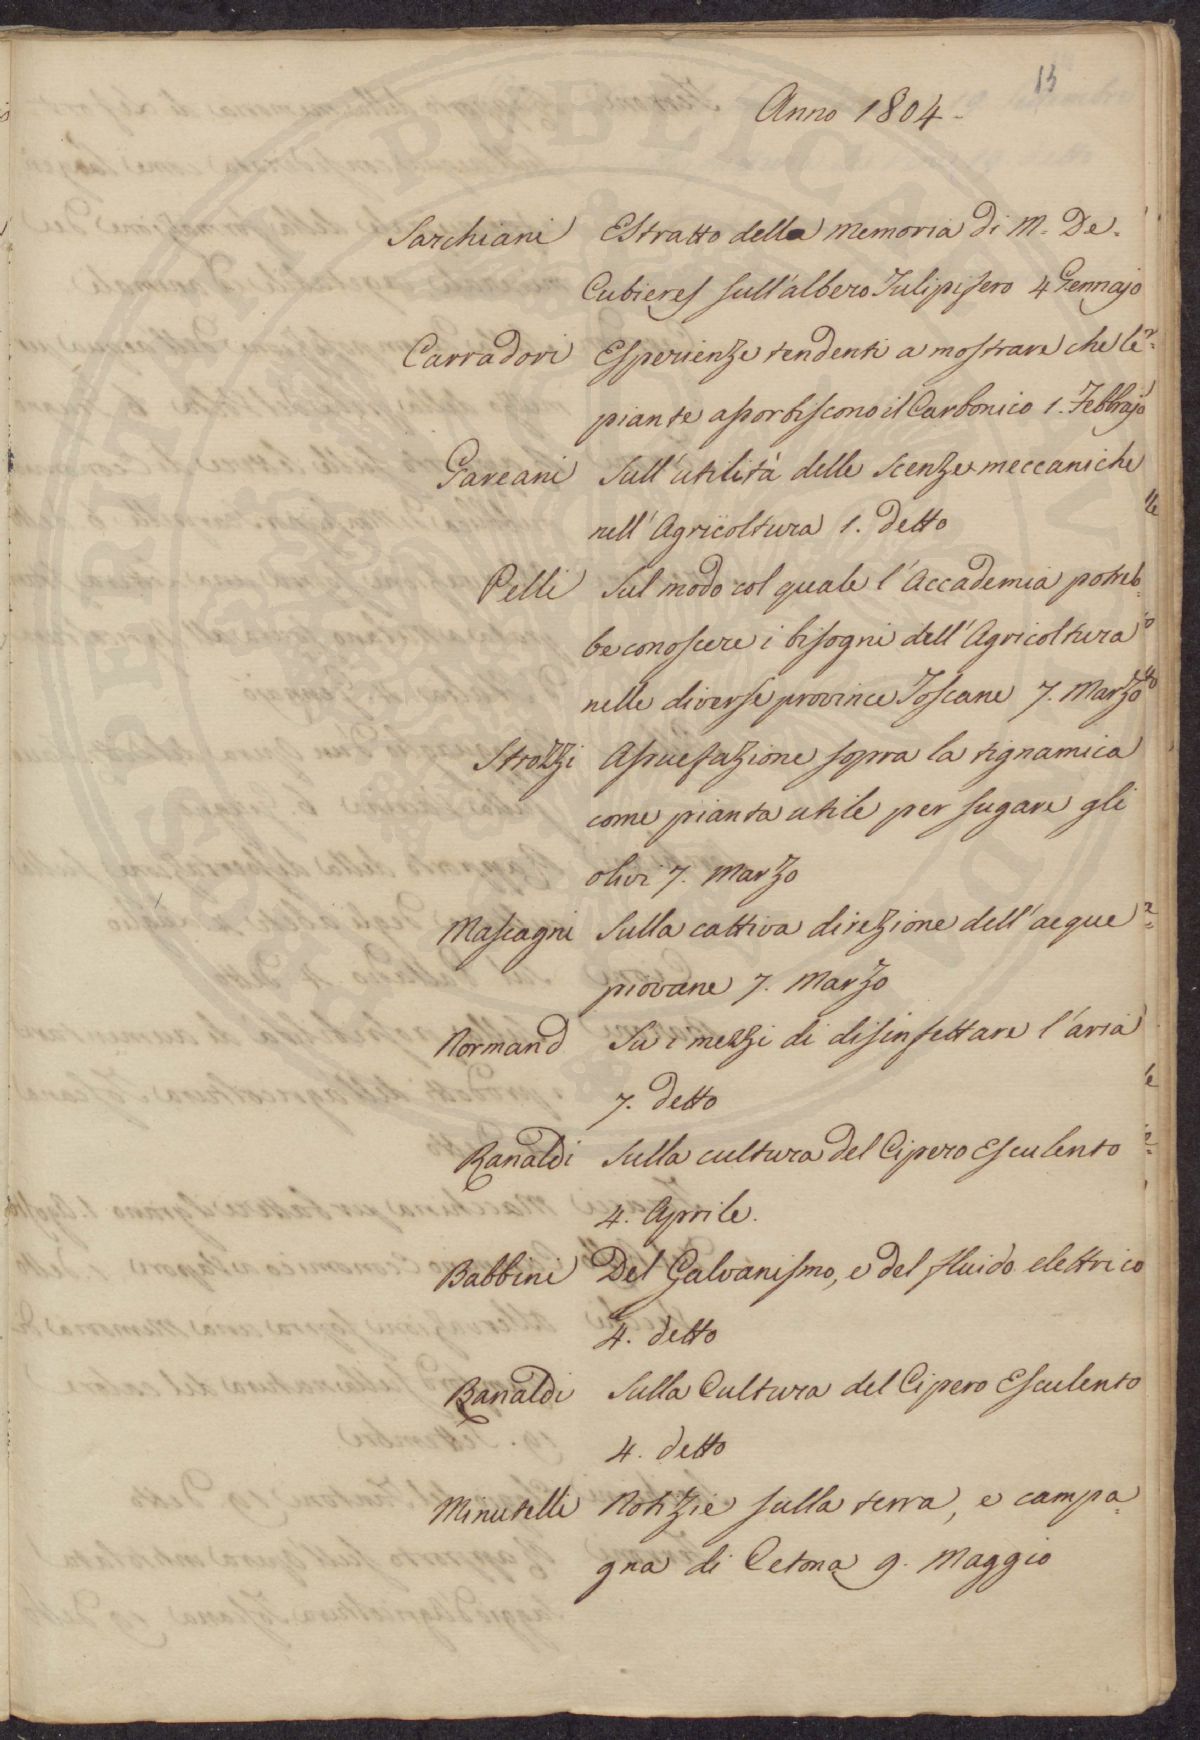 13
Anno 1804.
Sarchiani Estratto della memoria di M. De.
Cubieres sull'albero Tulipifero 4 Gennajo
Carradori Esperienze tendenti a mostrare che le
piante assorbiscono il Carbonico 1. Febbrajo
Gaveani Sull'utilità delle scenze meccaniche
nell'Agricoltura 1. detto
Pelli Sul modo col quale l'Accademia potreb
be conoscere i bisogni dell'Agricoltura
nelle diverse province Toscane 7. Marzo
Strozzi Assuefazione sopra la tignamica
come pianta utile per sugare gli
olivi 7. Marzo
Mascagni Sulla cattiva direzione dell'acque
piovane 7. Marzo
Normand Su i mezzi di disinfettare l'aria
7. detto
Ranaldi Sulla cultura del Cipero Esculento
4. Aprile.
Babbini Del Galvanismo, e del fluido elettrico
4. detto
Ranaldi Sulla Cultura del Cipero Esculento
4. detto
Minutelli Notizie sulla terra, e campa=
gna di Cetona 9. Maggio